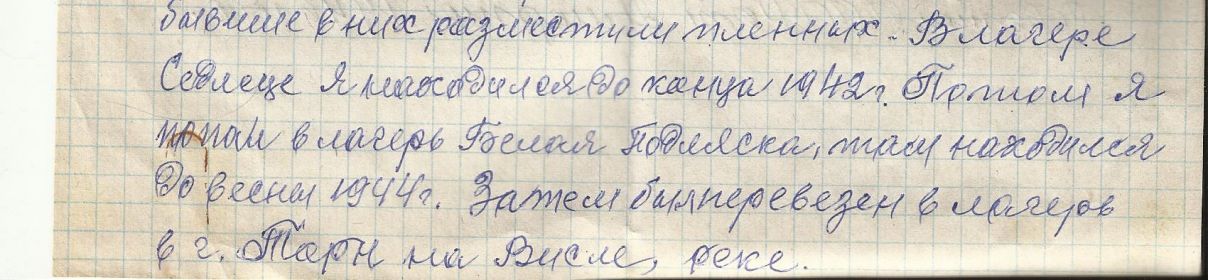 бывшие в них разместили пленных. В лагере
Седлеце я находился до конца 1942 г. Потом я
попал в лагерь Белая Подляска, там находился
до весны 1944 г. Затем был перевезен в лагерь
в г. Торн на Висле, реке.